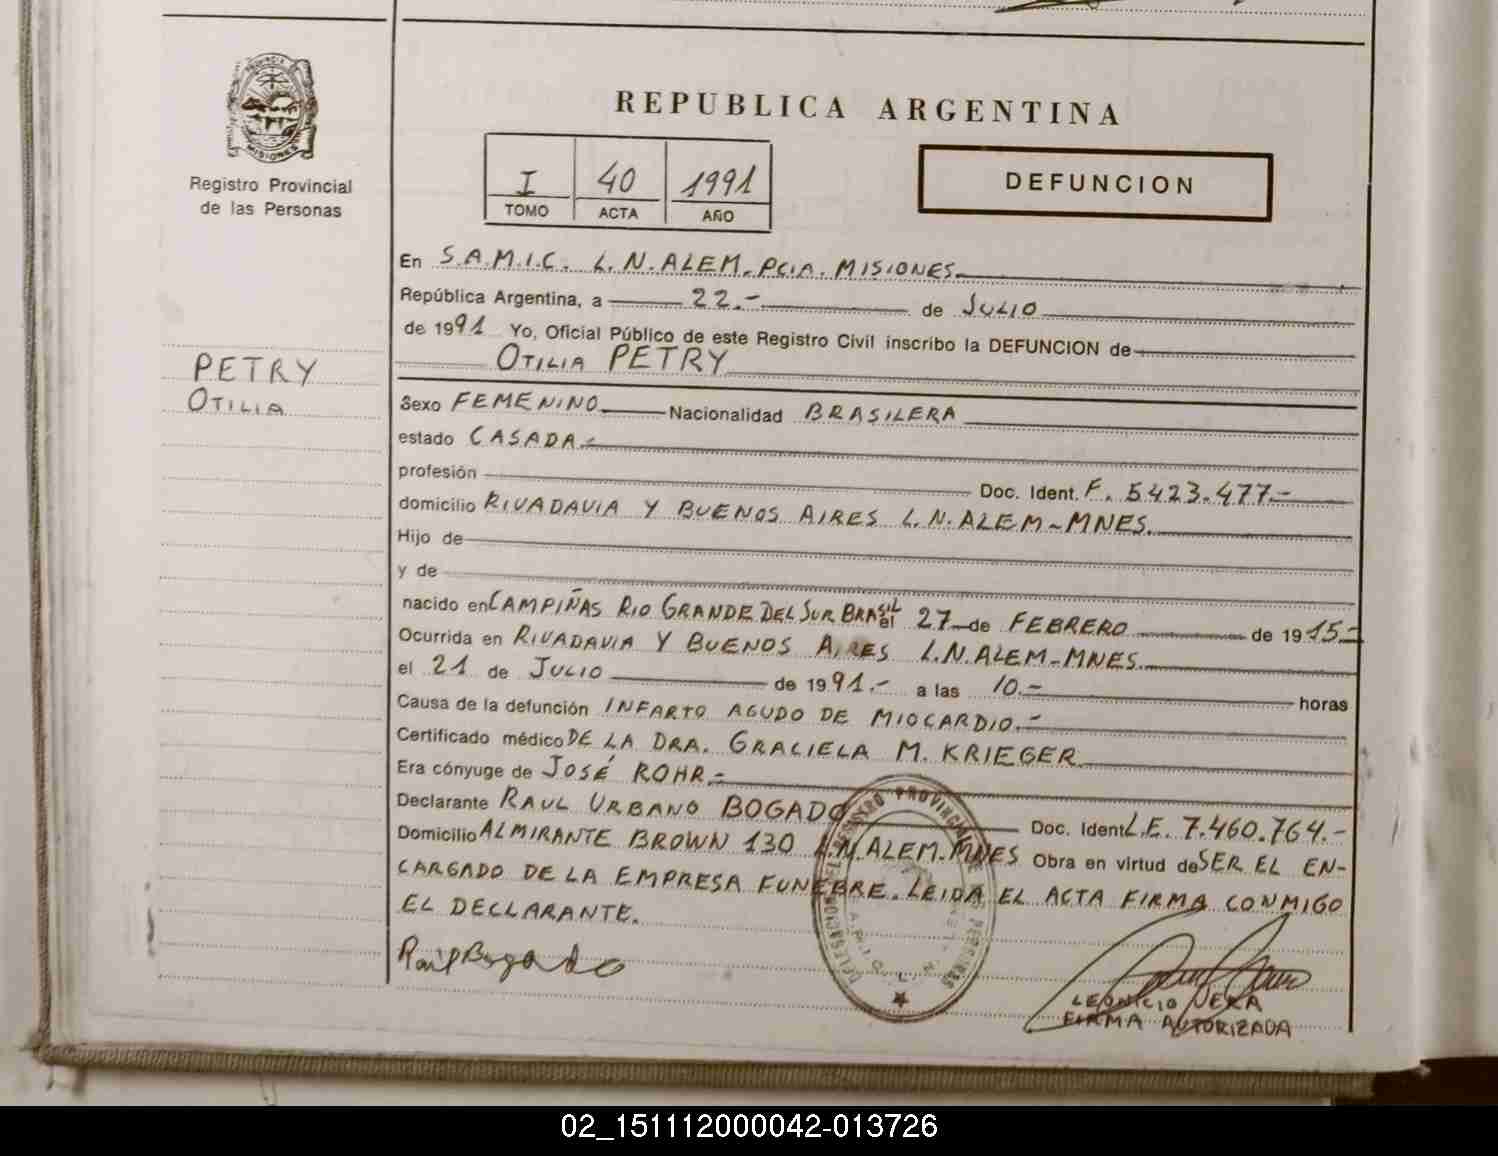 PROVINCIA DE
MISIONES
Registro Provincial
de las Personas
REPUBLICA ARGENTINA
I 40 1991
TOMO ACTA AÑO
DEFUNCION
En S.A.M.I.C. L.N.ALEM. PCIA. MISIONES
República Argentina, a 22.- de JULIO
de 1991 Yo, Oficial Público de este Registro Civil inscribo la DEFUNCION de
OTILIA PETRY
PETRY
OTILIA
Sexo FEMENINO Nacionalidad BRASILERA
estado CASADA.-
profesión Doc. Ident. F. 5.423.477.-
domicilio RIVADAVIA Y BUENOS AIRES L.N.ALEM-MNES.
Hijo de
y de
nacido en CAMPIÑAS RIO GRANDE DEL SUR BRASIL el 27 de FEBRERO de 1915.-
Ocurrida en RIVADAVIA Y BUENOS AIRES L.N.ALEM-MNES.
el 21 de JULIO de 1991.- a las 10.- horas
Causa de la defunción INFARTO AGUDO DE MIOCARDIO.-
Certificado médico DE LA DRA. GRACIELA M. KRIEGER
Era cónyuge de JOSÉ ROHR.-
Declarante RAUL URBANO BOGADO Doc. Ident L.E. 7.460.764.-
Domicilio ALMIRANTE BROWN 130 L.N.ALEM.MNES Obra en virtud de SER EL EN-
CARGADO DE LA EMPRESA FUNEBRE. LEIDA EL ACTA FIRMA CONMIGO
EL DECLARANTE.
Raúl Bogado
LEONICIO VERA
FIRMA AUTORIZADA
02_151112000042-013726